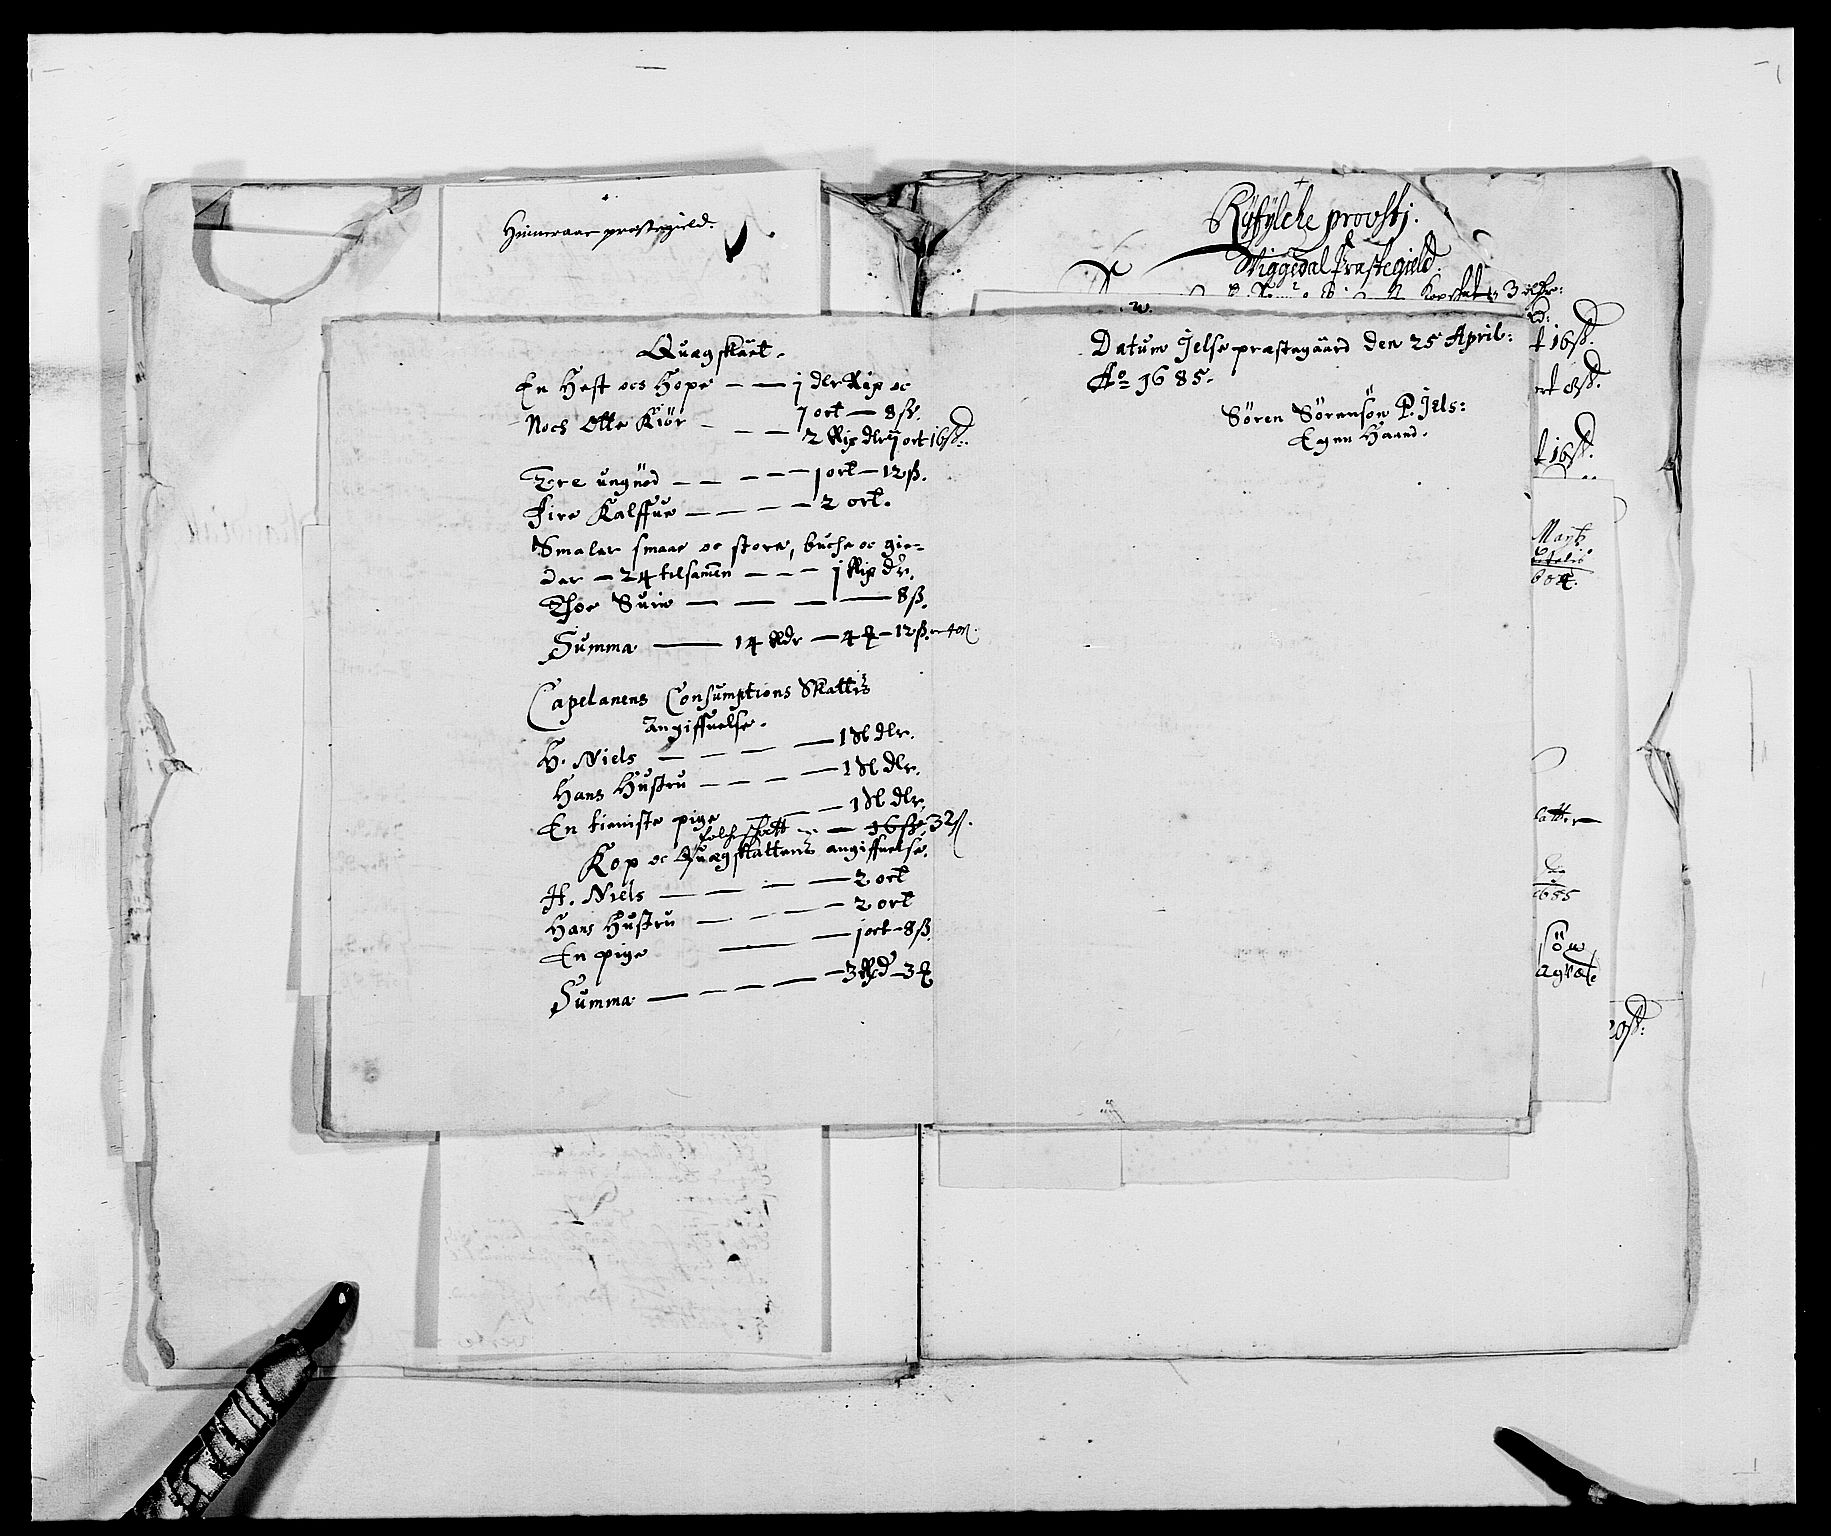 Himeraae præstegield.
Ryfylche provstj.
Wiggedal Præstegield.
Quægskaet.
En Hest och Hope — — 1 dlr Rip oc
1 ort — 8 ß.
Noch Otte Kiör — — — 2 Rip dlr 1 ort 16 ß.
Tre ungnöd — — — — 1 ort — 12 ß.
Fire Kalffue — — — — 2 ort.
Smaler smaae oc store, bucke oc gie-
der — 24 tilsamen — — — 1 Rip dr.
Thoe Suin — — — — 8 ß.
Summa — 14 Rdr — 4 — 12 ß.
Capelanens Consumptions Skattis
Angiffuelse.
H. Niels — — — — 1 Sl dlr.
Hans Hustru — — — — 1 Sl dlr.
En tieniste pige — — 1 Sl dlr.
folcke skatt — 16 ß. 32 ß.
Kop oc Quægskattens angiffuelse.
H. Niels — — — — 2 ort
Hans Hustru — — — — 2 ort
En pige — — 1 ort — 8 ß.
Summa — — — — 3 Rd — 3
Datum Jelse præstegaard den 25 April:
Ao 1685.
Sören Sörensön P. Jels:
Egen Haand.
16 ß.
ort 8 ß.
16 ß.
Marty
1685